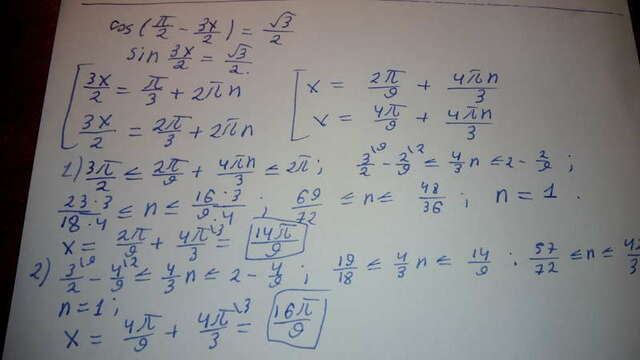 cos(π/2 - 3x/2) = √3/2
sin 3x/2 = √3/2.
[ 3x/2 = π/3 + 2πn [ x = 2π/9 + 4πn/3
3x/2 = 2π/3 + 2πn x = 4π/9 + 4πn/3
1) 3π/2 ≤ 2π/9 + 4πn/3 ≤ 2π; 3/2\9 - 2/9\2 ≤ 4/3 n ≤ 2 - 2/9;
23·3/18·4 ≤ n ≤ 16·3/9·4; 69/72 ≤ n ≤ 48/36; n = 1.
x = 2π/9 + 4π/3\3 = 14π/9
2) 3/2\9 - 4/9\2 ≤ 4/3 n ≤ 2 - 4/9; 19/18 ≤ 4/3 n ≤ 14/9; 57/72 ≤ n ≤
n = 1;
x = 4π/9 + 4π/3\3 = 16π/9